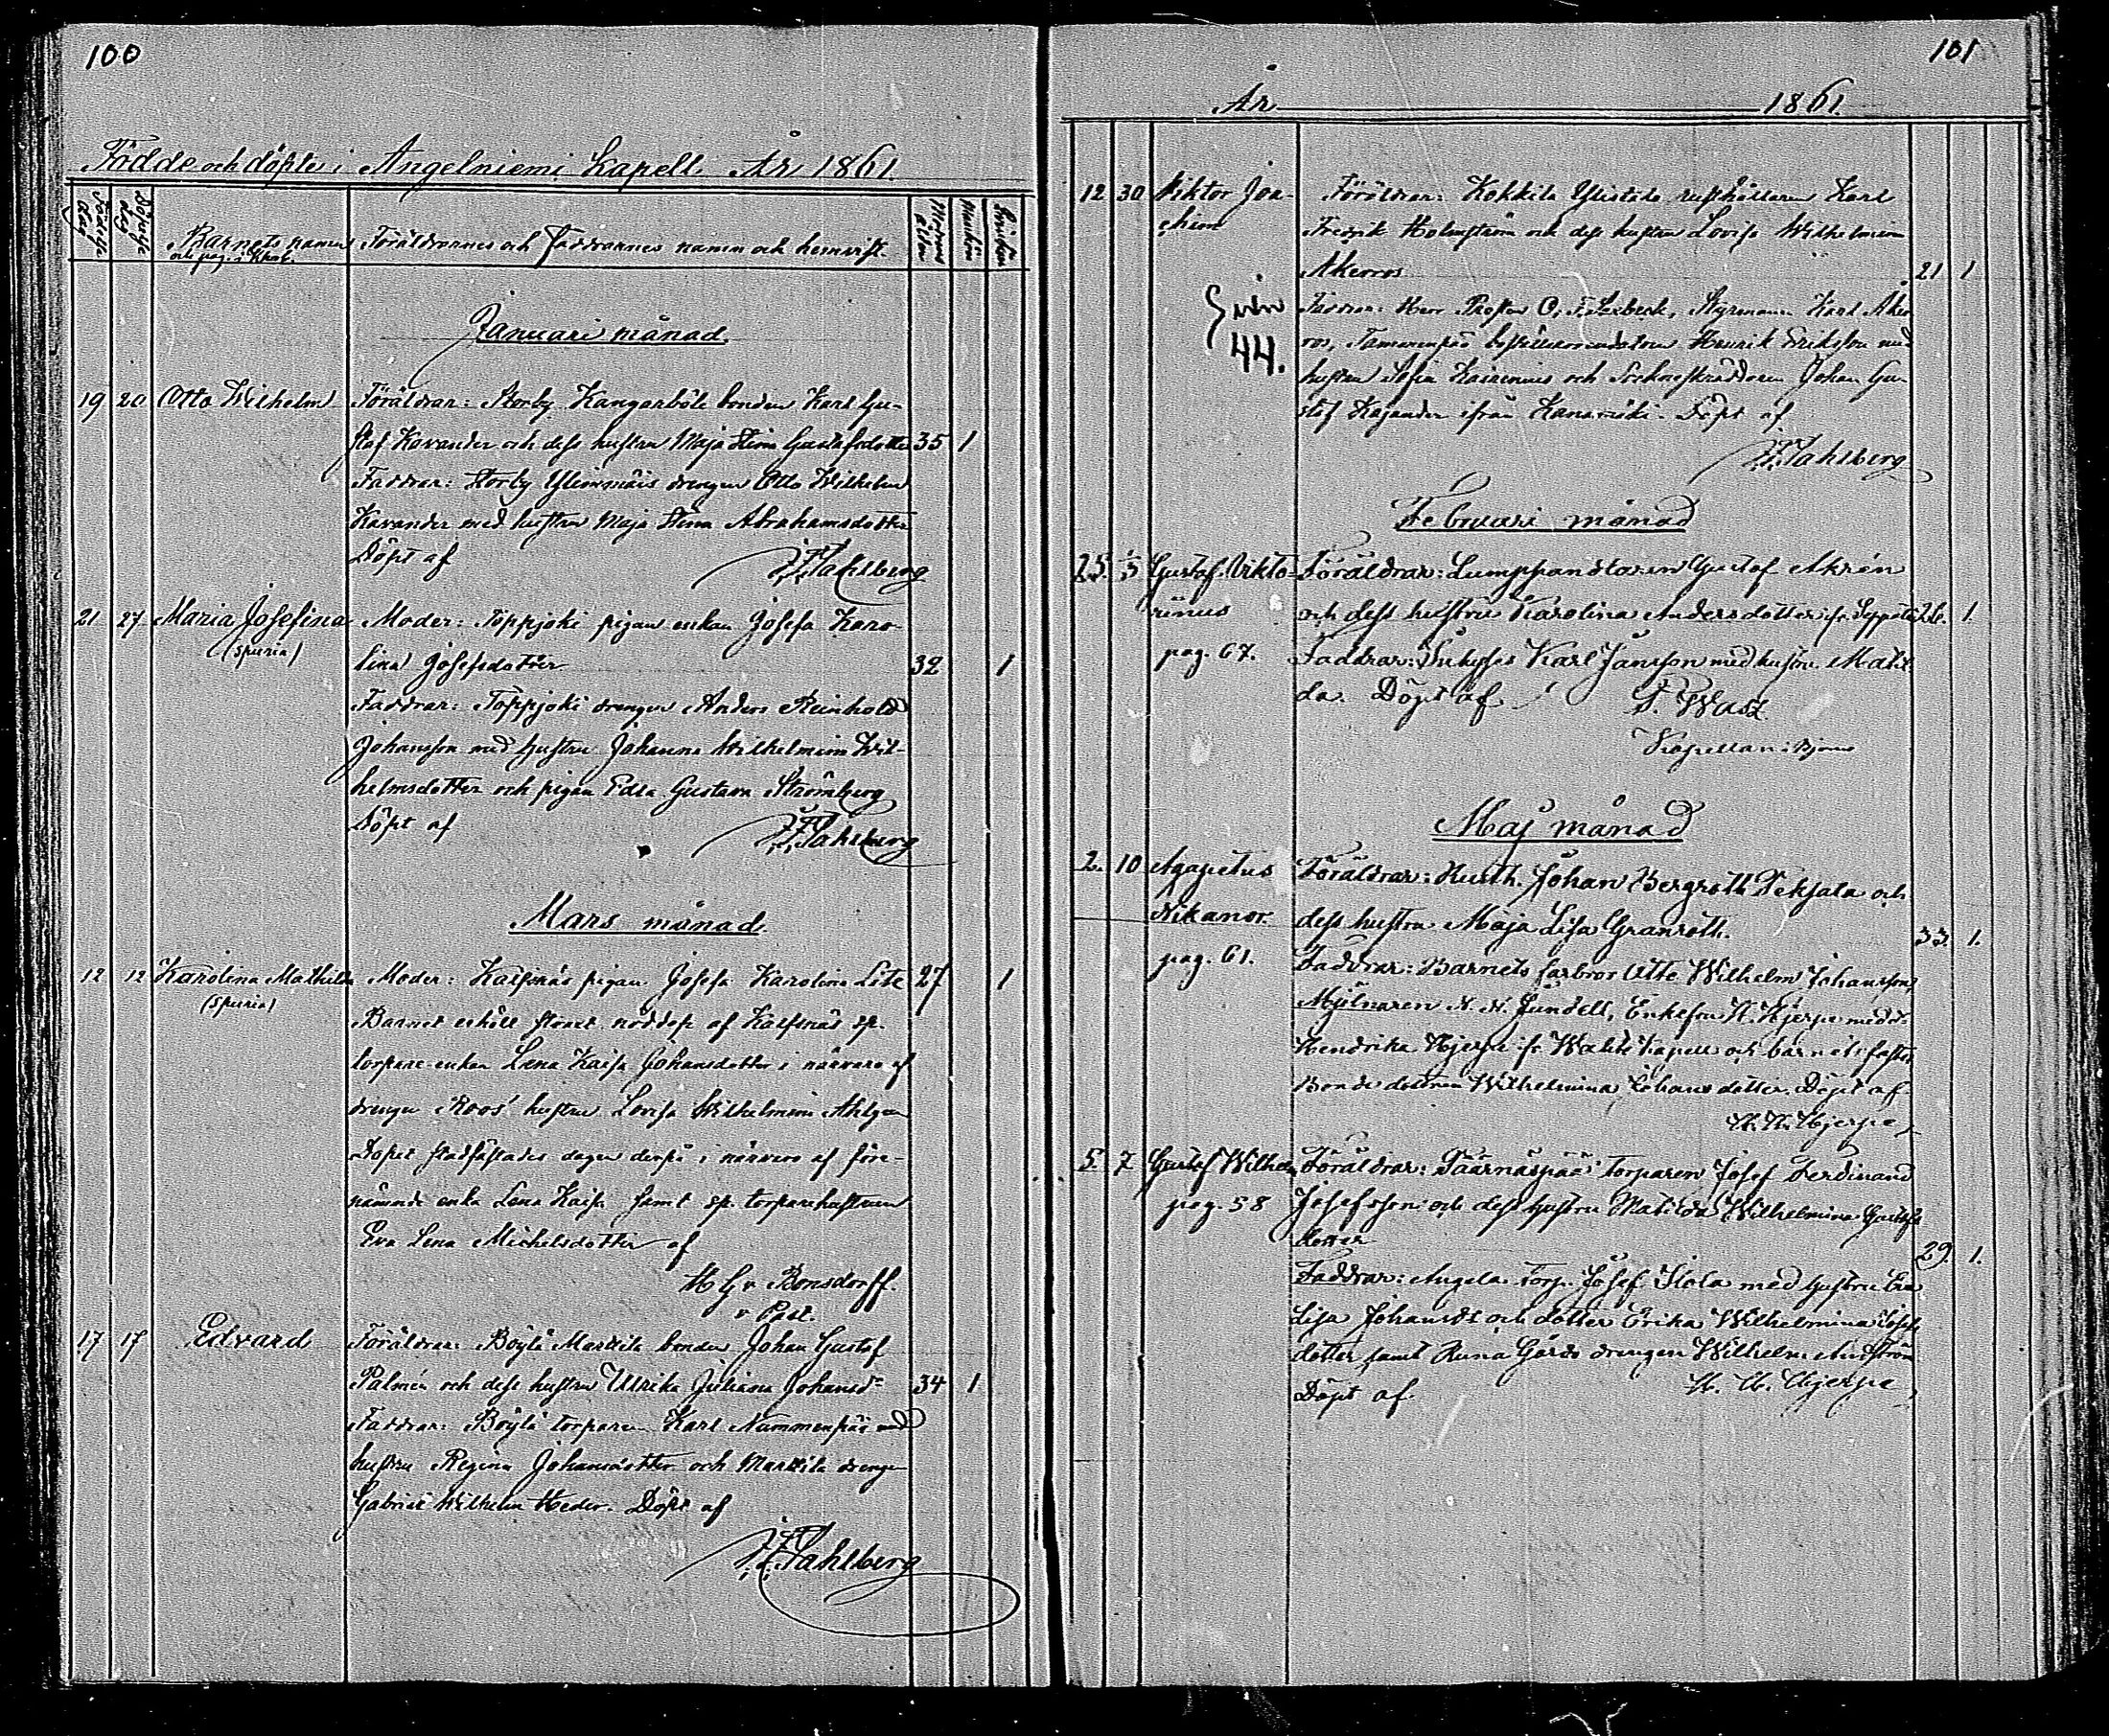 100
Födde och döpte i Angelniemi Kapell År 1861
Födelse dag
Döpelse dag
Barnets namn
Föräldrarnes och Faddrarnes namn och hemvist.
Moderns ålder
Mankön
Qvinkön
Januari månad.
19 20 Otto Wilhelm Föräldrar: Storby Kangarböle bonden Karl Gu-
staf Kavander och dess hustru Maja Stina Gustafsdotter 35 1
Faddrar: Storby drengen Otto Wilhelm
Kavander med hustru Maja Stina Abrahamsdotter
Döpt af
Tahlberg
21 27 Maria Josefina Moder: Toppjoki pigan enkan Josefa Karo-
(spuria)
lina Josefsdotter 32 1
Faddrar: Toppjoki drengen Anders Reinhold
Johansson med hustru Johanna Wilhelmina Wil-
helmsdotter och pigan Edla Gustava Strömberg
Döpt af
Tahlberg
Mars månad.
12 12 Karolina Mathilda Moder: Kalfsnäs pigan Josefa Karolina 27 1
(spuria)
Barnet erhöll nöddop af Kalfsnäs sp.
torpare enkan Lena Kaisa Johansdotter i närvaro af
drengen Roos' hustru Lovisa Wilhelmina Ahlgren
Dopet stadfästades dagen derpå i närvaro af före-
nämnde enka Lena Kaisa samt sp. torparehustrun
Eva Lena Michelsdotter af
H G v Bonsdorff.
v Past.
17 17 Edvard Föräldrar: Böylä Markila bonden Johan Gustaf
Palmén och dess hustru Ulrika Juliana Johansd:r 34 1
Faddrar: Böylä torparen Karl Nummenpää med
hustru Regina Johansdotter och Markila drengen
Gabriel Wilhelm Heder. Döpt af
Tahlberg
101
År 1861.
12 30 Viktor Joa- Föräldrar: Kokkila Ylistalo rusthållaren Karl
chim
Fredrik Holmström och dess hustru Lovisa Wilhelmina
Akerros 21 1
Faddrar: Herr Prosten Styrmann Karl Aker-
44.
ros, Henrik Eriksson med
hustru Sofia och Sockneskräddaren Johan Gu-
staf Kajander ifrån Döpt af
Tahlberg
Februari månad
25. Gustaf Vikto- Föräldrar: Lumppandtaren Gustaf Akrén
rinus och dess hustru Karolina Andersdotter 1.
pag. 67. Faddrar: Karl Jansson med hustru Matil-
da. Döpt af
Kapellan i Bjerno
Maj månad
2. 10 Agapetus Föräldrar: Rusth. Johan Bergroth Pekjala och
Nikanor. dess hustru Maja Lisa Granroth. 33. 1.
pag. 61. Faddrar: Barnets farbror Otto Wilhelm Johansson,
Mjölnaren N. N. Enkefru H. Hjerpe med d:r
Hendrika Hjerpe fr. kapell och barnets faster,
Bonde dottren Wilhelmina Johans dotter. Döpt af
Hjerpe
5. 7 Gustaf Wilhelm Föräldrar: Päärnäspää Torparen Josef Ferdinand
pag. 58 Josefsson och dess hustru Matilda Wilhelmina Gustafs
dotter 29. 1.
Faddrar: Angela Torp. Josef med hustru Eva
Lisa Johansdr och dotter Erika Wilhelmina Josefs
dotter samt Runa Gårds drengen Wilhelm
Döpt af Hjerpe